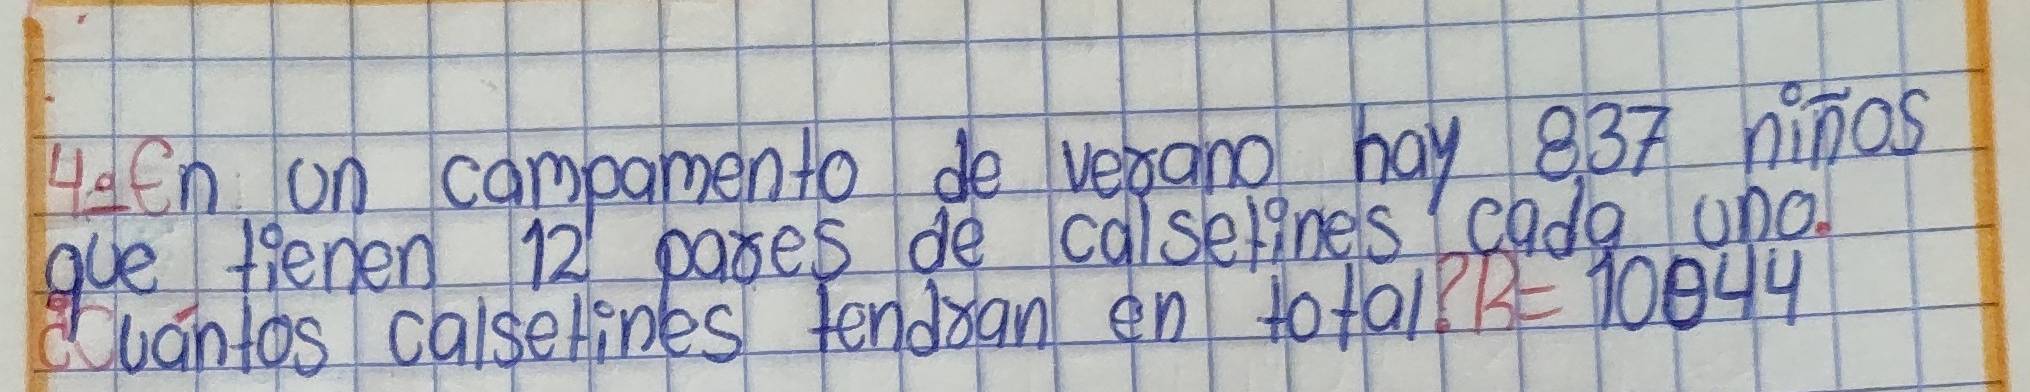 4-En un campamento de verano hay 837 niños
que tienen 12 pares de calsetines cada uno.
¿Cuántos calsetines tendran en total? R= 10044